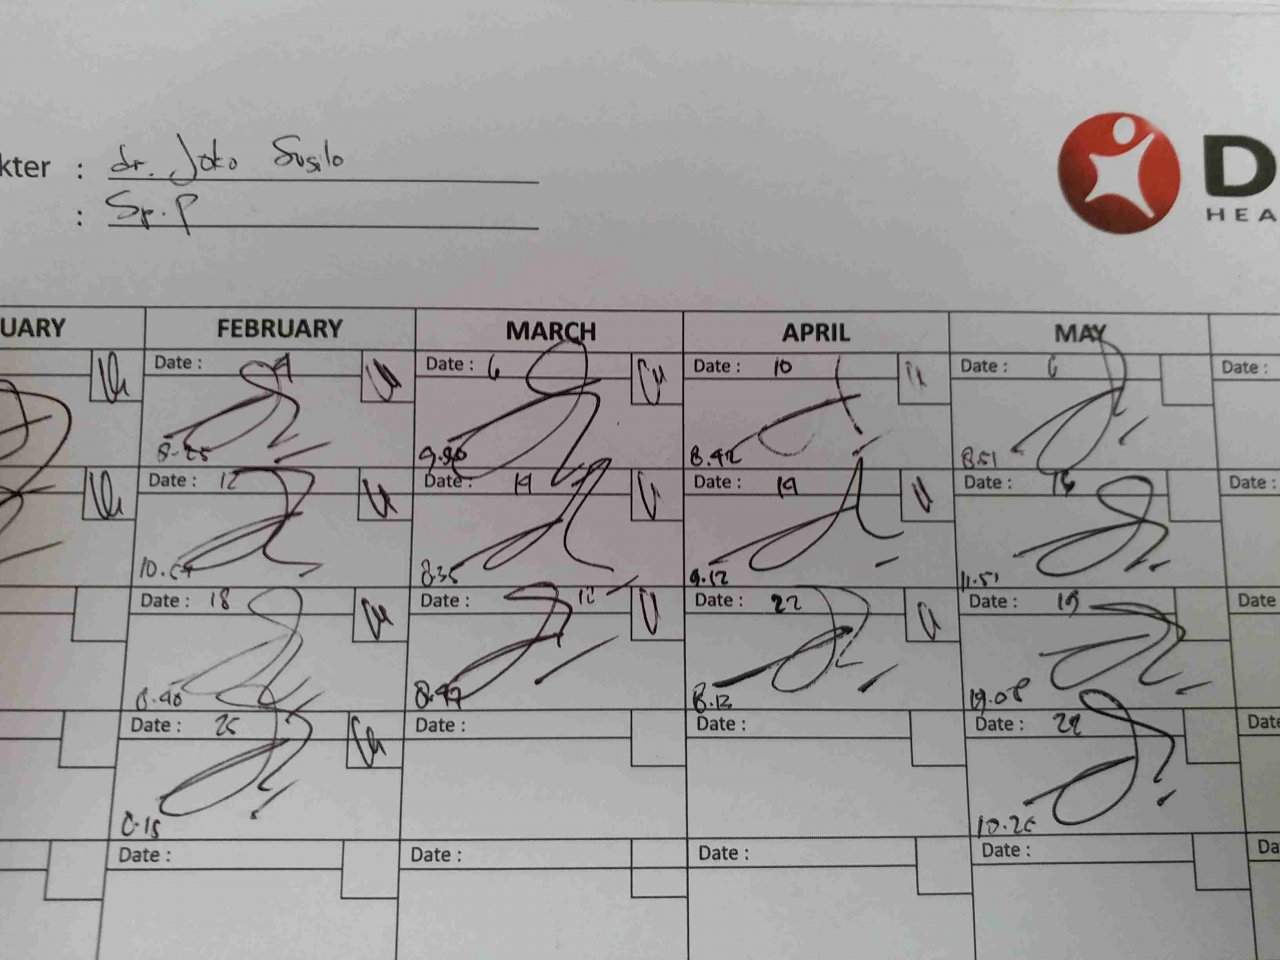 kter : dr. Joko Susilo
: Sp.P
D
HEA
UARY FEBRUARY MARCH APRIL MAY
Date : Date : 6 Date : 10 Date : 6 Date :
8.25 8.42 8.51
Date : 12 Date : 14 Date : 19 Date : Date :
8.35 9.12 11.51
Date : 18 Date : 12 Date : 22 Date : 19 Date
8.40 8.47 8.13 19.08
Date : 25 Date : Date : Date : 22 Date
8.15 10.26
Date : Date : Date : Date : Da